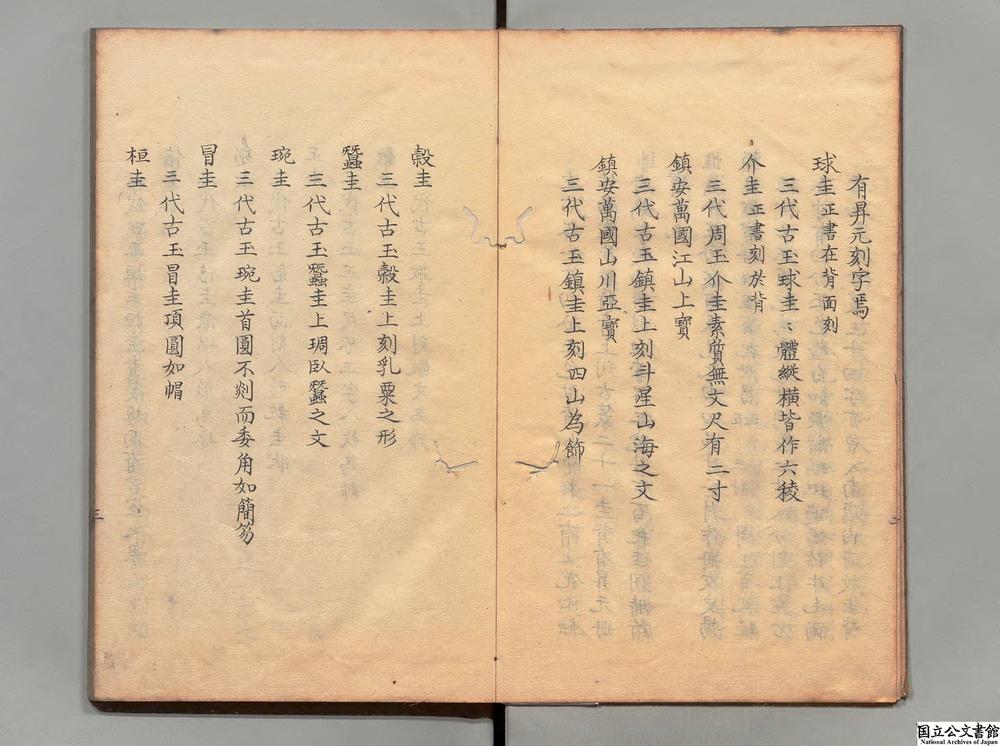 有昇元刻字焉
球圭正書在背面刻
三代古玉球圭〻體縱橫皆作六稜
介圭正書刻於背
三代周玉介圭素質無文尺有二寸
鎮安萬國江山上寶
三代古玉鎮圭上刻斗星山海之文
鎮安萬國山川亞寶
三代古玉鎮圭上刻四山為飾
穀圭
三代古玉穀圭上刻乳粟之形
蠶圭
三代古玉蠶圭上琱臥蠶之文
琬圭
三代古玉琬圭首圓不剡而委角如簡笏
冒圭
三代古玉冒圭項圓如帽
桓圭
三
国立公文書館
National Archives of Japan